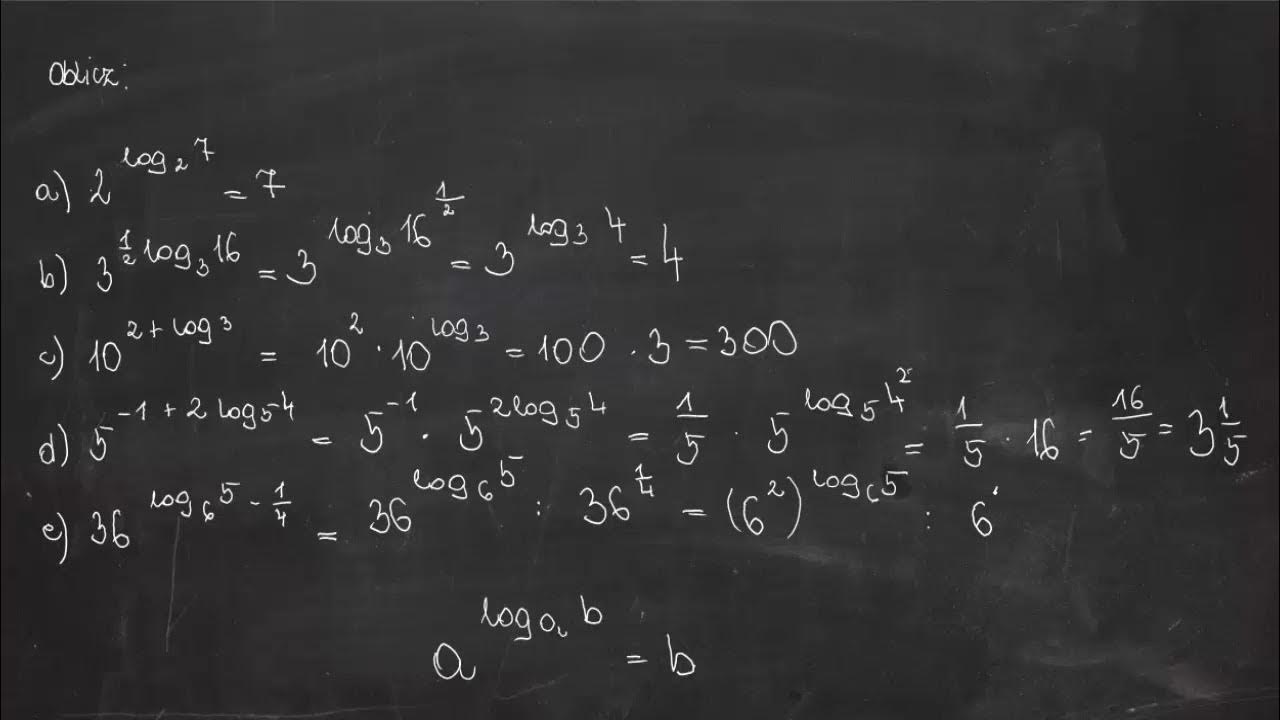 Oblicz:
a) 2^{log_2 7} = 7
b) 3^{\frac{1}{2} log_3 16} = 3^{log_3 16^{\frac{1}{2}}} = 3^{log_3 4} = 4
c) 10^{2 + log 3} = 10^2 · 10^{log 3} = 100 · 3 = 300
d) 5^{-1 + 2 log_5 4} = 5^{-1} · 5^{2 log_5 4} = \frac{1}{5} · 5^{log_5 4^2} = \frac{1}{5} · 16 = \frac{16}{5} = 3\frac{1}{5}
e) 36^{log_6 5 - \frac{1}{4}} = 36^{log_6 5} : 36^{\frac{1}{4}} = (6^2)^{log_6 5} : 6
a^{log_a b} = b